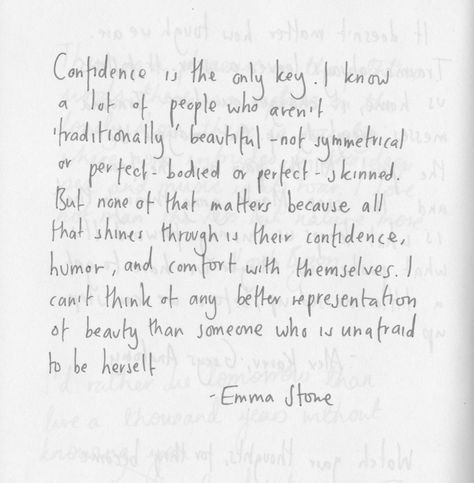 It doesn't matter how tough we are.
Confidence is the only key. I know
a lot of people who aren't
'traditionally' beautiful - not symmetrical
or perfect-bodied or perfect-skinned.
But none of that matters because all
that shines through is their confidence,
humor, and comfort with themselves. I
can't think of any better representation
of beauty than someone who is unafraid
to be herself
- Emma Stone
I'd rather die tomorrow than
live a thousand years without
knowing
Watch your thoughts, for they become